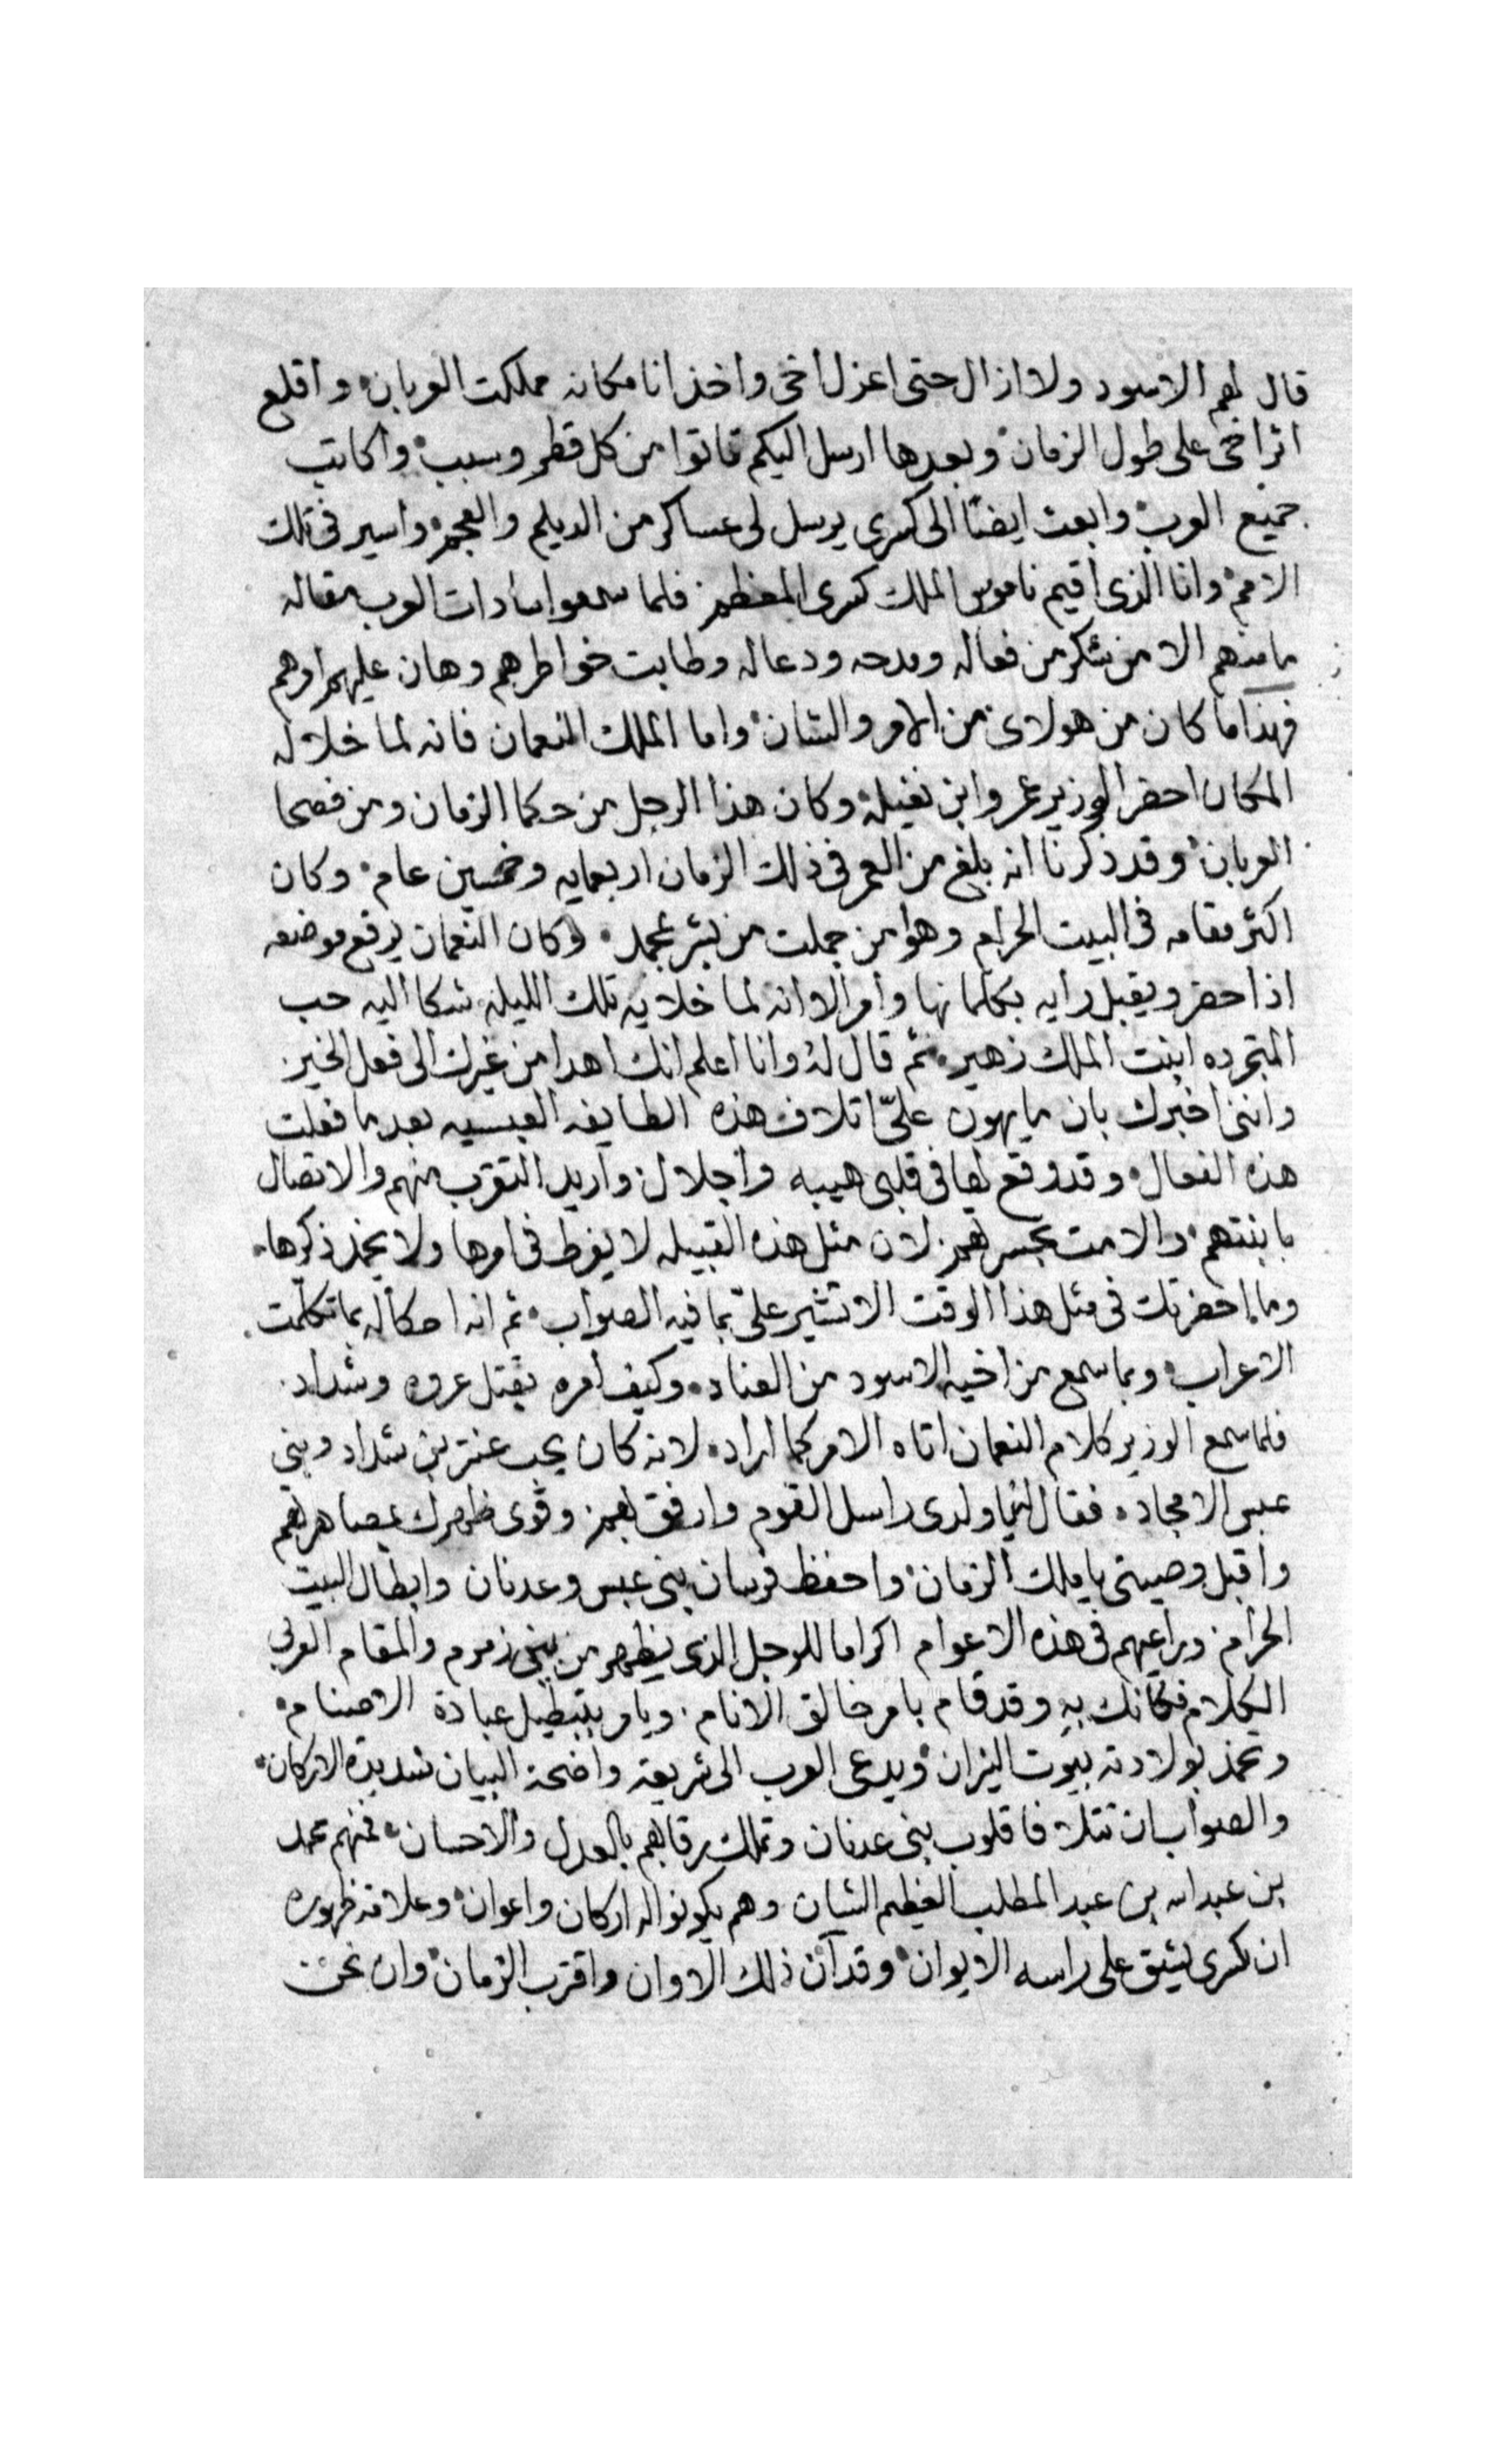 قال لهم الاسود ولا ازال حتى اعزل اخى واخذ انا مكانه مملكت العربان واقلع
اثر اخى على طول الزمان وبعدها ارسل اليكم فاتوا من كل قطر وسبب واكاتب
جميع العرب وابعث ايضًا الى كسرى يرسل لى عساكر من الديلم والعجم واسير فى تلك
الامم وانا الذى اقيم ناموس الملك كسرى المعظم فلما سمعوا سادات العرب مقاله
ما منهم الا من شكر من فعاله ومدحه ودعا له وطابت خواطرهم وهان عليهم امرهم
فهذا ما كان من هولاى من الامر والشان واما الملك النعمان فانه لما خلا له
المكان احضر الوزير عمروا بن نفيله وكان هذا الرجل من حكما الزمان ومن فصحا
العربان وقد ذكرنا انه بلغ من العمر فى ذلك الزمان اربعمايه وخمسين عام وكان
اكثر مقامه فى البيت الحرام وهوا من جملت من بشر بمحمد وكان النعمان يرفع موضعه
اذا حضر ويقبل رايه بكلما نها وامر الا انه لما خلا به تلك الليله شكا اليه حب
المتجرده ابنت الملك زهير ثم قال له وانا اعلم انك اهدا من غيرك الى فعل الخير
واننى اخبرك بان ما يهون علىّ اتلاف هذه الطايفه العبسيه بعد ما فعلت
هذه الفعال وقد وقع لها فى قلبى هيبه واجلال واريد التقرب منهم والاتصال
بابنتهم والا مت بحسرتهم لان مثل هذه القبيله لا يفرط فى امرها ولا يخمد ذكرها
وما احضرتك فى مثل هذا الوقت الا تشير علىّ بما فيه الصواب ثم انه احكا له بما تكلمت
الاعراب وبما سمع من اخيه الاسود من العناد وكيف امره بقتل عروه وشداد
فلما سمع الوزير كلام النعمان اتاه الامر كما اراد لانه كان يحب عنتر بن شداد وبنى
عبس الامجاد فقال انما ولدى راسل القوم وارفق بهم وقوى ظهرك بمصاهرتهم
واقبل وصيتى يا ملك الزمان واحفظ فرسان بنى عبس وعدنان وابطال البيت
الحرام وراعيهم فى هذه الاعوام اكراما للرجل الذى يظهر من بين زمزم والمقام العربى
الكلام فكانك به وقد قام بامر خالق الانام ويامر بتبطيل عبادة الاصنام
وتخمد بولادته بيوت النيران ويدعى العرب الى شريعه واضحة البيان شديدة الاركان
والصواب ان تتلافا قلوب بنى عدنان وتملك رقابهم بالعدل والاحسان فمنهم محمد
بن عبد الله بن عبد المطلب العظيم الشان وهم يكونوا له اركان واعوان وعلامة ظهوره
ان كسرى ينشق على راسه الايوان وقد آن ذلك الاوان واقترب الزمان وان نحن